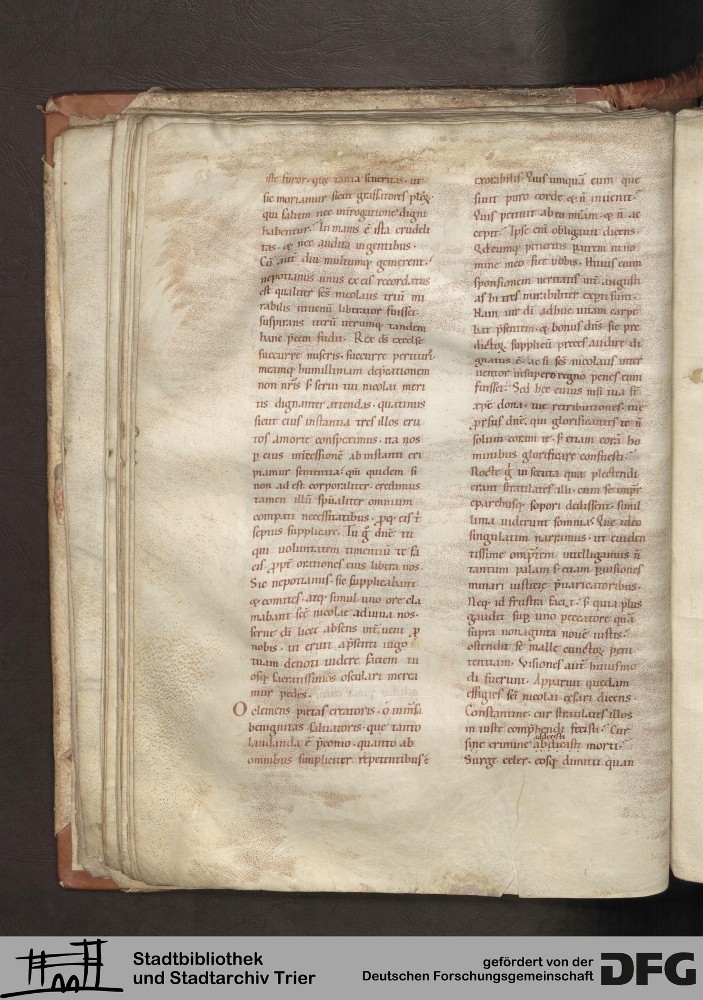 iste furor. que tanta seueritas. ut
sic moriamur sicut grassatores
qui saltim nec interrogatione digni
habentur. In manis ē ista crudeli
tas. & nec audita in gentibus.
Cū autē diu multumq; gemerent.
nepotianus unus ex eis recordatus
est qualiter scs nicolaus triū mi
rabilis iuuenū liberator fuisset.
suspirans iterū iterumq; tandem
hanc pcem fudit. Rex ds excelse
succurre miseris. succurre perituris
meamq; humillimam dep̄cationem
non nr̄is s; serui tui nicolai meri
tis dignanter attendas. quatinus
sicut eius instantia tres illos eru
tos a morte conspeximus. ita nos
p eius int̄cessionē ab instanti eri
piamur sententia. qm̄ quidem si
non ad est corporaliter. credimus
tamen illū sp̄ualiter omnium
compati necessitatibus. pq; eis
sepius supplicare. Tu g dnē tu
qui uoluntatem timentiū te fa
cis. ppt orationes eius libera nos.
Sic nepotianus. sic supplicabant
& comites. atq; simul uno ore cla
mabant scē nicolae adiuua nos.
serue di licet absens int̄ueni p
nobis. ut eruti a p̄senti iugo
tuam deuoti uidere faciem tu
osq; sacratissimos osculari merea
mur pedes.
O clemens pietas creatoris. o inm̄sa
benignitas saluatoris. que tanto
laudanda ē p̄conio. quanto ab
omnibus simpliciter repetentibus ē
exorabilis. Quis umquā eum que
siuit puro corde & n̄ inuenit.
Quis petiuit ab eo mīam. & n̄ ac
cepit. Ipse eni obligauit dicens.
Qdcumq; petieritis patrem in no
mine meo fiet uobis. Huius eum
sponsionem ueritatis int̄ angusti
as hi tres mirabiliter experti sunt.
Nam uir di adhuc uitam carpe
bat p̄sentem. & bonus dn̄s sic pre
dictoꝝ suppliciū preces audire di
gnatus ē. ac si scs nicolaus inter
uentor in supero regno penes eum
fuisset. Sed hec euius nisi tua st̄
xp̄e dona. tue retributiones. tue
prsus dnē. qui glorificantes te n̄
solum corā te. s; etiam corā ho
minibus glorificare consuesti.
Nocte g in secuta qua plectendi
erant stratilates illi. cum se impr̄
eparchusq; sopori dedissent. simil
lima uiderunt somnia. Que ideo
singulatim narramus. ut euiden
tissime omp̄tem intelligamus n̄
tantum palam s; etiam p uisiones
minari iusticie p̄uaricatoribus.
Neq; id frustra facit. s; quia plus
gaudet sup uno peccatore quā
supra nonaginta nouē iustis.
ostendit se malle cunctoꝝ peni
tentiam. Visiones autē huiusmo
di fuerunt. Apparuit quedam
effigies sci nicolai cesari dicens.
Constantine. cur stratilates illos
in iuste comp̄hendi fecisti. Cur
addixisti
sine crimine abdicasti morti.
Surge celer. eosq; dimitti quan
Stadtbibliothek
und Stadtarchiv Trier
gefördert von der
Deutschen Forschungsgemeinschaft
DFG